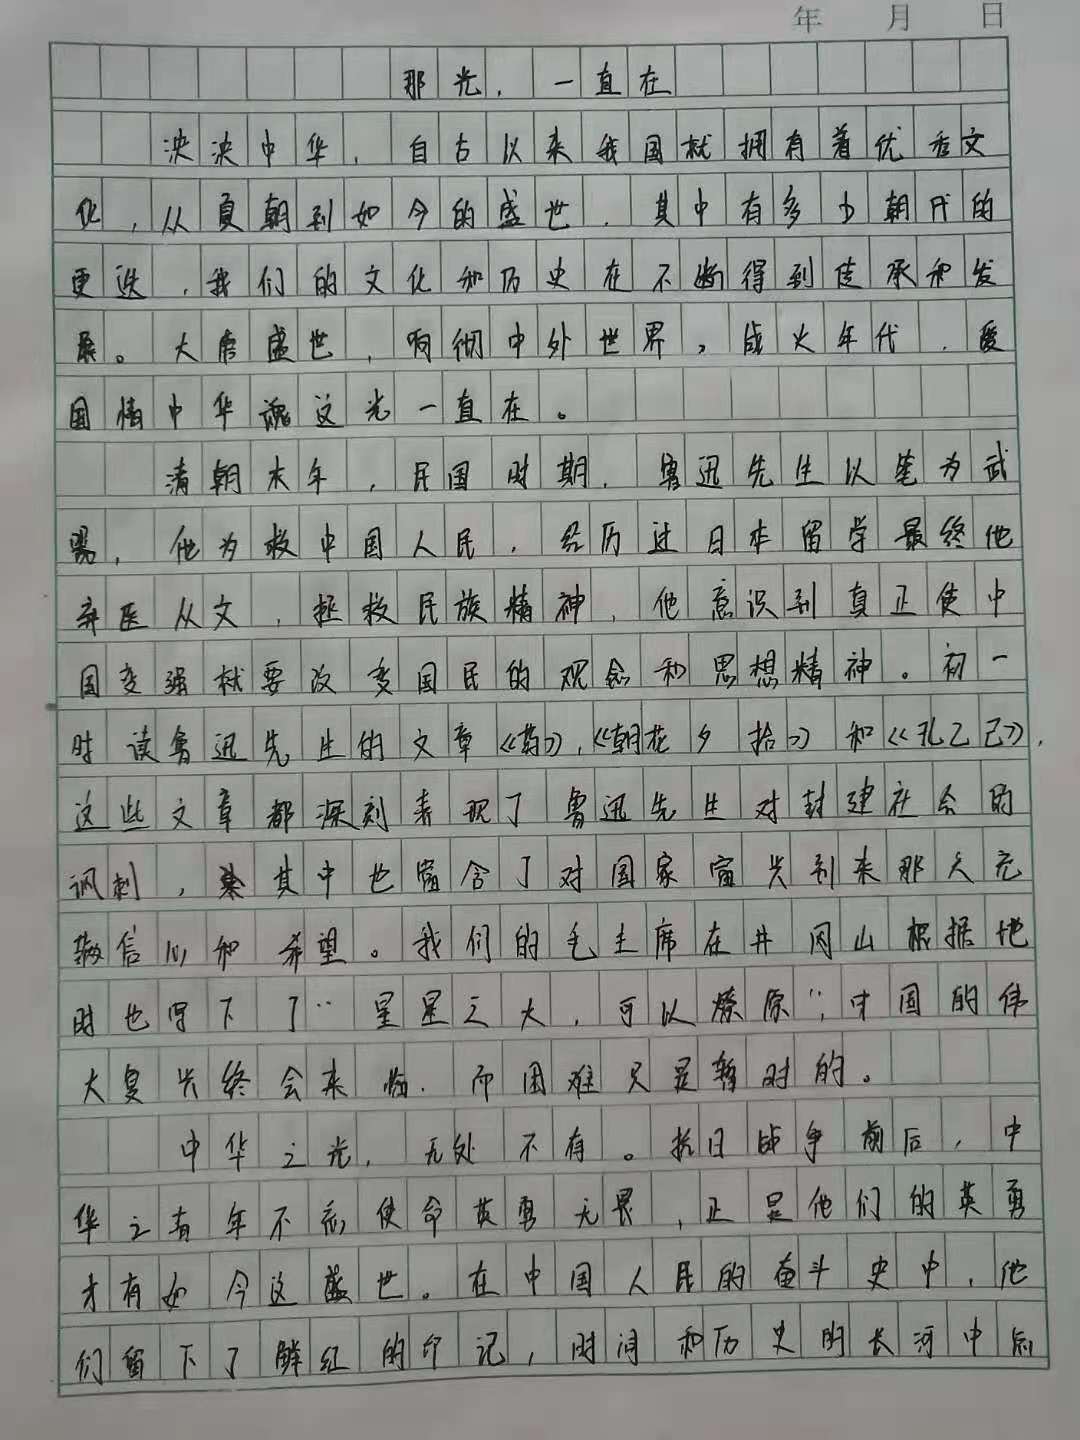 年 月 日
那光，一直在
泱泱中华，自古以来我国就拥有着优秀文
化，从夏朝到如今的盛世，其中有多少朝代的
更迭，我们的文化和历史在不断得到传承和发
展。大唐盛世，响彻中外世界，战火年代，爱
国情中华魂这光一直在。
清朝末年，民国时期，鲁迅先生以笔为武
器，他为救中国人民，经历过日本留学最终他
弃医从文，拯救民族精神，他意识到真正使中
国变强就要改变国民的观念和思想精神。初一
时读鲁迅先生的文章《药》，《朝花夕拾》和《孔乙己》，
这些文章都深刻表现了鲁迅先生对封建社会的
讽刺，其中也富含了对国家富兴到来那天充
满信心和希望。我们的毛主席在井冈山根据地
时也写下了“星星之火，可以燎原”，中国的伟
大复兴终会来临，而困难只是暂时的。
中华之光，无处不有。抗日战争前后，中
华之青年不忘使命英勇无畏，正是他们的英勇
才有如今这盛世。在中国人民的奋斗史中，他
们留下了鲜红的印记，时间和历史的长河中后